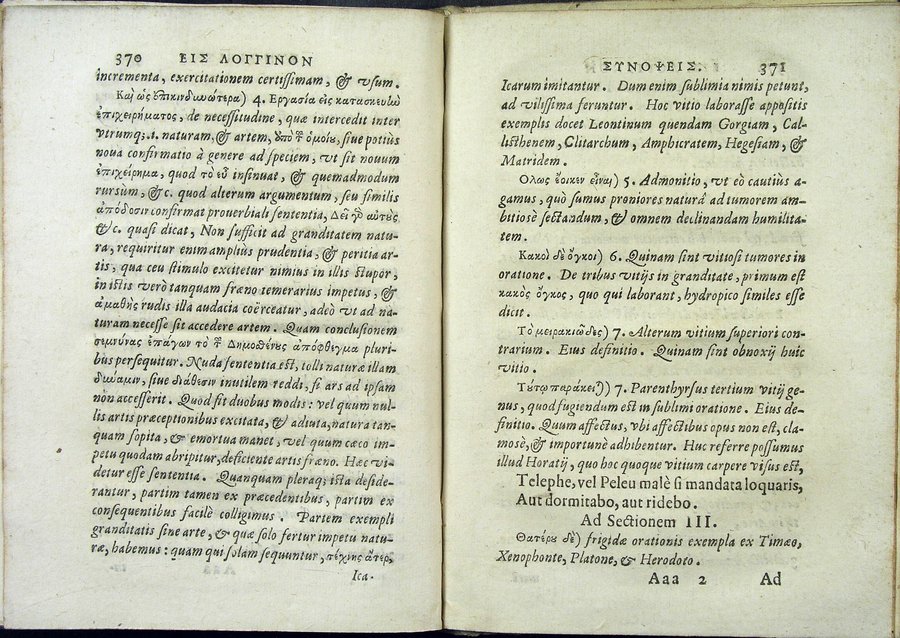 370 ΕΙΣ ΛΟΓΓΙΝΟΝ
incrementa, exercitationem certissimam, & vsum.
Καὶ ὡς ἐπικινδυνώτερα) 4. Ἐργασία εἰς κατασκευὴν
ἐπιχειρήματος, de necessitudine, quæ intercedit inter
vtrumq;.i. naturam, & artem, ἀπὸ τ͂ ὁμοίου, siue potiùs
noua confirmatio à genere ad speciem, vt sit nouum
ἐπιχείρημα, quod τὸ εὖ insinuat, & quemadmodum
rursùm, &c. quod alterum argumentum, seu similis
ἀπόδοσιν confirmat prouerbiali sententia, Δεῖ γὸ αὐτοῖς
&c. quasi dicat, Non sufficit ad granditatem natu-
ra, requiritur enim amplius prudentia, & peritia ar-
tis, qua ceu stimulo excitetur nimius in illis stupor,
in istis verò tanquam fræno temerarius impetus, &
ἀμαθὴς rudis illa audacia coërceatur, adeò vt ad na-
turam necesse sit accedere artem. Quam conclusionem
σεμνύνας ἐπάγων τὸ τ͂ Δημοσθένους ἀπόφθεγμα pluri-
bus persequitur. Nuda sententia est, tolli naturæ illam
δύναμιν, siue διάθεσιν inutilem reddi, si ars ad ipsam
non accesserit. Quod sit duobus modis: vel quum nul-
lis artis præceptionibus excitata, & adiuta, natura tan-
quam sopita, & emortua manet, vel quum cæco im-
petu quodam abripitur, deficiente artis fræno. Hæc vi-
detur esse sententia. Quanquam pleraq; ista deside-
rantur, partim tamen ex præcedentibus, partim ex
consequentibus facilè colligimus. Partem exempli
granditatis sine arte, & quæ solo fertur impetu natu-
ræ, habemus: quam qui solam sequuntur, τέχνης ἄτερ,
Ica-
ΣΥΝΟΨΕΙΣ. 371
Icarum imitantur. Dum enim sublimia nimis petunt,
ad vilissima feruntur. Hoc vitio laborasse appositis
exemplis docet Leontinum quendam Gorgiam, Cal-
listhenem, Clitarchum, Amphicratem, Hegesiam, &
Matridem.
Ὅλως ἔοικεν εἶναι) 5. Admonitio, vt eò cautiùs a-
gamus, quò sumus proniores naturâ ad tumorem am-
bitiosè sectandum, & omnem declinandam humilita-
tem.
Κακοὶ δὲ ὄγκοι) 6. Quinam sint vitiosi tumores in
oratione. De tribus vitijs in granditate, primum est
κακὸς ὄγκος, quo qui laborant, hydropico similes esse
dicit.
Τὸ μειρακιῶδες) 7. Alterum vitium superiori con-
trarium. Eius definitio. Quinam sint obnoxij huic
vitio.
Τύτῳ παράκει)) 7. Parenthyrsus tertium vitij ge-
nus, quod fugiendum est in sublimi oratione. Eius de-
finitio. Quum affectus, vbi affectibus opus non est, cla-
mosè, & importunè adhibentur. Huc referre possumus
illud Horatij, quo hoc quoque vitium carpere visus est,
Telephe, vel Peleu malè si mandata loquaris,
Aut dormitabo, aut ridebo.
Ad Sectionem III.
Θατέρου δὲ) frigidæ orationis exempla ex Timæo,
Xenophonte, Platone, & Herodoto.
Aaa 2 Ad